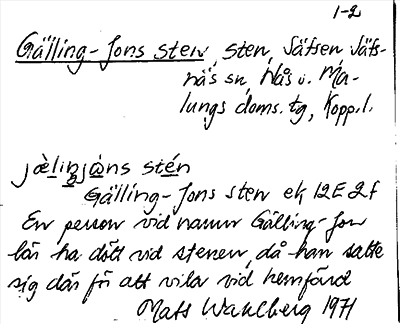 1-2
Gälling-Jons sten, sten, Säfsen, Säfs-
näs sn, Nås o. Ma-
lungs doms. tg, Kopp.l.
jæ̀liŋjὰns stén
Gälling-Jons sten ek 12E 2f
En person vid namn Gälling-Jon
lär ha dött vid stenen, då han satte
sig där för att vila vid hemfärd
Mats Wahlberg 1971